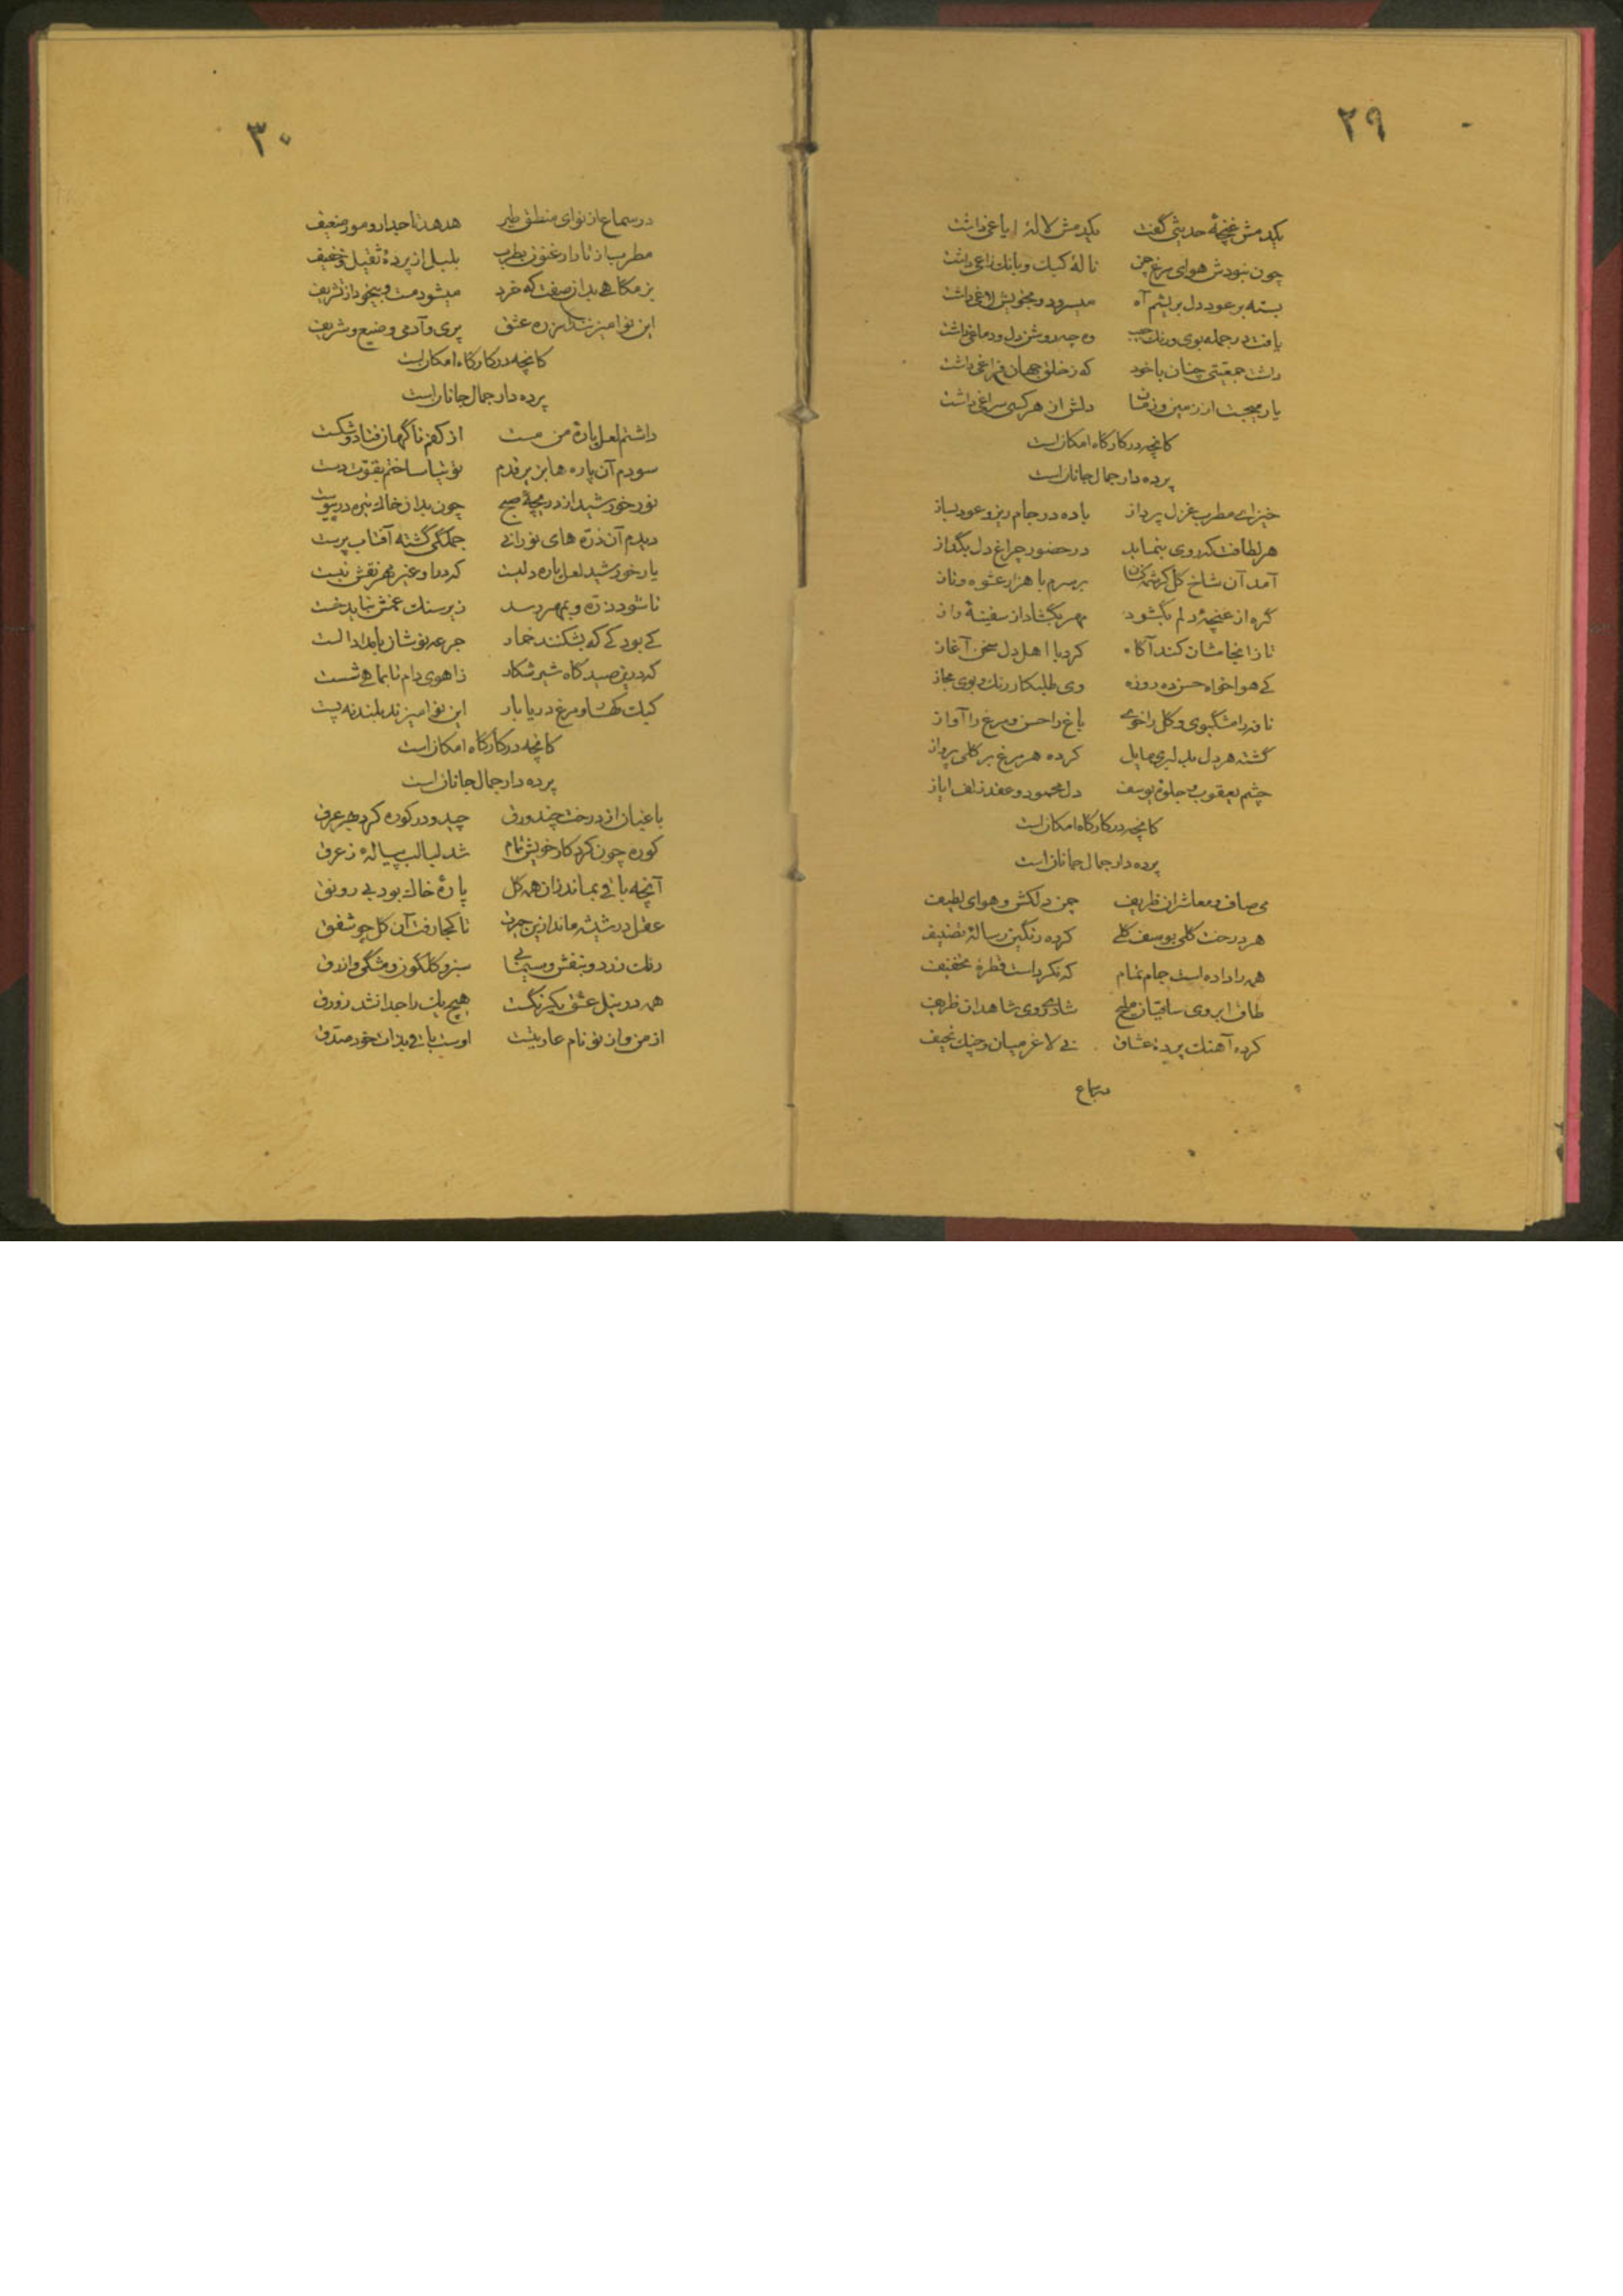 ۲۹
یکدمش غنچهٔ حدیثی گفت یکدمش لالهٔ ایاغی داشت
چون نبودش هوای مرغ چمن نالهٔ کبک و بانک زاغی داشت
بسته بر عود دل بریشم آه میسرود و بخویش لاغی داشت
یافت در جمله بوی ورنک حبیب وه چه روشن دل ودماغی داشت
داشت جمعیتی چنان باخود که زخلق جهان فراغی داشت
یار میجست از زمین وزمان دلش از هر کسی سراغی داشت
کانچه در کارکاه امکان است
پرده دار جمال جانان است
خیز اے مطرب غزل پرداز باده در جام ریز و عود بساز
هر لطافت که روی بنماید در حضور چراغ دل بگداز
آمد آن شاخ کل کرشمه کنان برسرم با هزار عشوه وناز
گره از غنچهٔ دلم بگشود مهر بگشاد از سفینهٔ راز
تا زانجامشان کند آکاه کرد با اهل دل سخن آغاز
کے هواخواه حسن ده روزه وی طلبکار رنک وبوی مجاز
نافه را مشکبوی و کل را خوے باغ را حسن و مرغ را آواز
گشته هر دل بدلبری مایل کرده هر مرغ بر کلی پرواز
چشم یعقوب و جلوهٔ یوسف دل محمود و عقد زلف ایاز
کانچه در کارکاه امکان است
پرده دار جمال جانان است
می صاف و معاشران ظریف چمن دلکش و هوای لطیف
هر درخت کلی بوسف کلے کرده رنگین رسالهٔ تصنیف
همه را داده است جام تمام که نکرداست قطرهٔ تخفیف
طاق ابروی ساقیان ملیح شادی روی شاهدان ظریف
کرده آهنک پردهٔ عشاق نے لاغر میان و چنک نحیف
در سماع
۳۰
در سماع از نوای منطق طیر هدهد تاجدار و مور ضعیف
مطرب از تار ارغنون بطرب بلبل از پردهٔ ثقیل و خفیف
بزمکاهے بدان صفت که خرد میشود مست و بیخود از تشریف
این نوا میزند بپردهٔ عشق پری و آدمی و ضیع و شریف
کانچه در کارکاه امکان است
پرده دار جمال جانان است
داشتم لعل پارهٔ من مست از کفم ناگهان فتاد و شکست
سودم آن پاره ها بزیر قدم توتیا ساختم بقوّت دست
نور خورشید از دریچهٔ صبح چون بدان خاک تیره در پیوست
دیدم آن ذرّه های نورانے جملگی گشته آفتاب پرست
یار خورشید لعل پاره دلست که درو غیر مهر نقش نبست
تا شود ذرّه و بمهر رسد زیر سنک غمش نباید خست
کے بود کے که بشکنند خمار جرعه نوشان بامداد الست
که درین صیدگاه شیر شکار ز آهوی دام تا بماهے شست
کبک کهسار و مرغ دریا بار این نوا میزند بلند نه پست
کانچه در کارکاه امکان است
پرده دار جمال جانان است
باغبان از درخت چند ورق چید و در کوره کرد بهر عرق
کوره چون کرد کار خویش تمام شد لبالب پیالهٔ ز عرق
آنچه باقے بماند زان همه کل پارهٔ خاک بود بے رونق
عقل در شیشه ماند ازین حیرت تا کجا رفت آن کل چو شفق
رنک زرد و بنفش و سیمابے سبز و کلکون و مشکی و ازرق
همه در نیل عشق یکرنگست هیچ یک را جدا نشد زورق
از من و از تو نام عاریتست اوست باقے بذات خود صدق